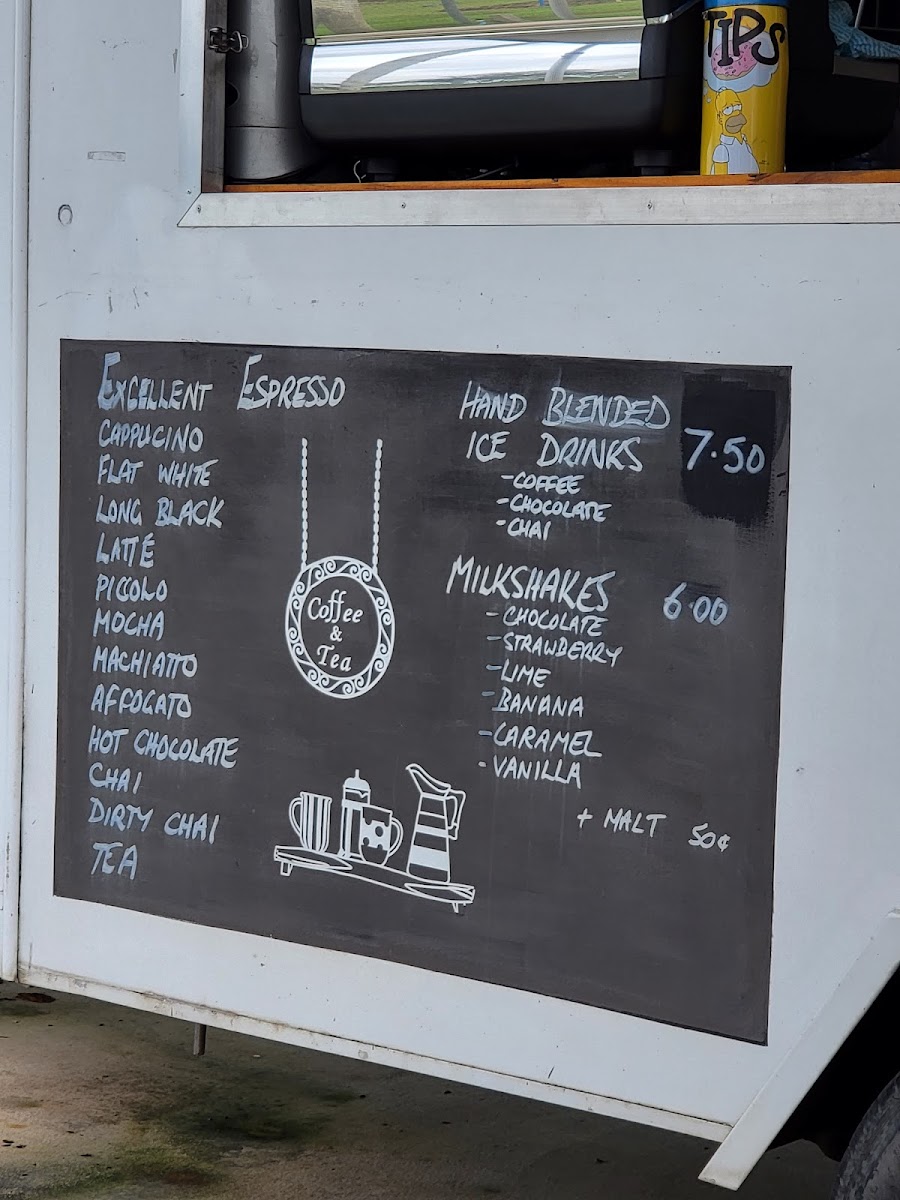 TIPS
EXCELLENT ESPRESSO
CAPPUCINO
FLAT WHITE
LONG BLACK
LATTÉ
PICCOLO
MOCHA
MACHIATTO
AFFOGATO
HOT CHOCOLATE
CHAI
DIRTY CHAI
TEA
Coffee
&
Tea
HAND BLENDED
ICE DRINKS 7.50
- COFFEE
- CHOCOLATE
- CHAI
MILKSHAKES 6.00
- CHOCOLATE
- STRAWBERRY
- LIME
- BANANA
- CARAMEL
- VANILLA
+ MALT 50¢